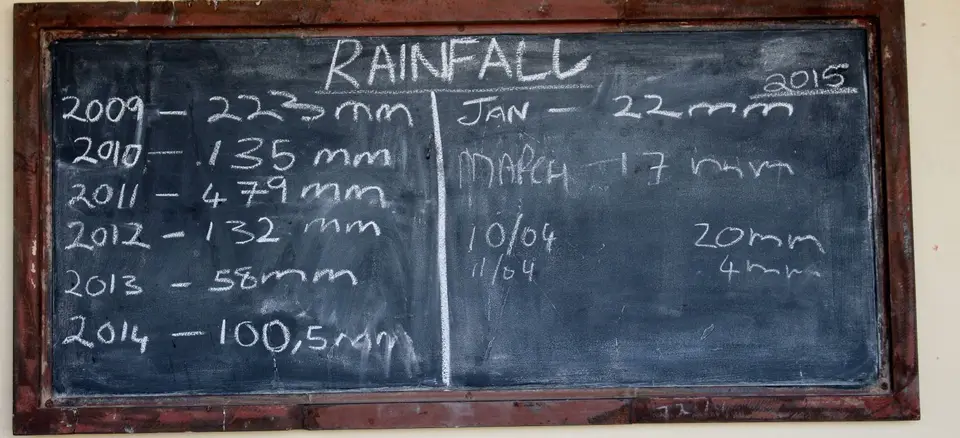 RAINFALL
2015
2009 - 223 mm
2010 - 135 mm
2011 - 479 mm
2012 - 132 mm
2013 - 58mm
2014 - 100,5mm
JAN - 22mm
MARCH - 17 mm
10/04 20mm
11/04 4mm